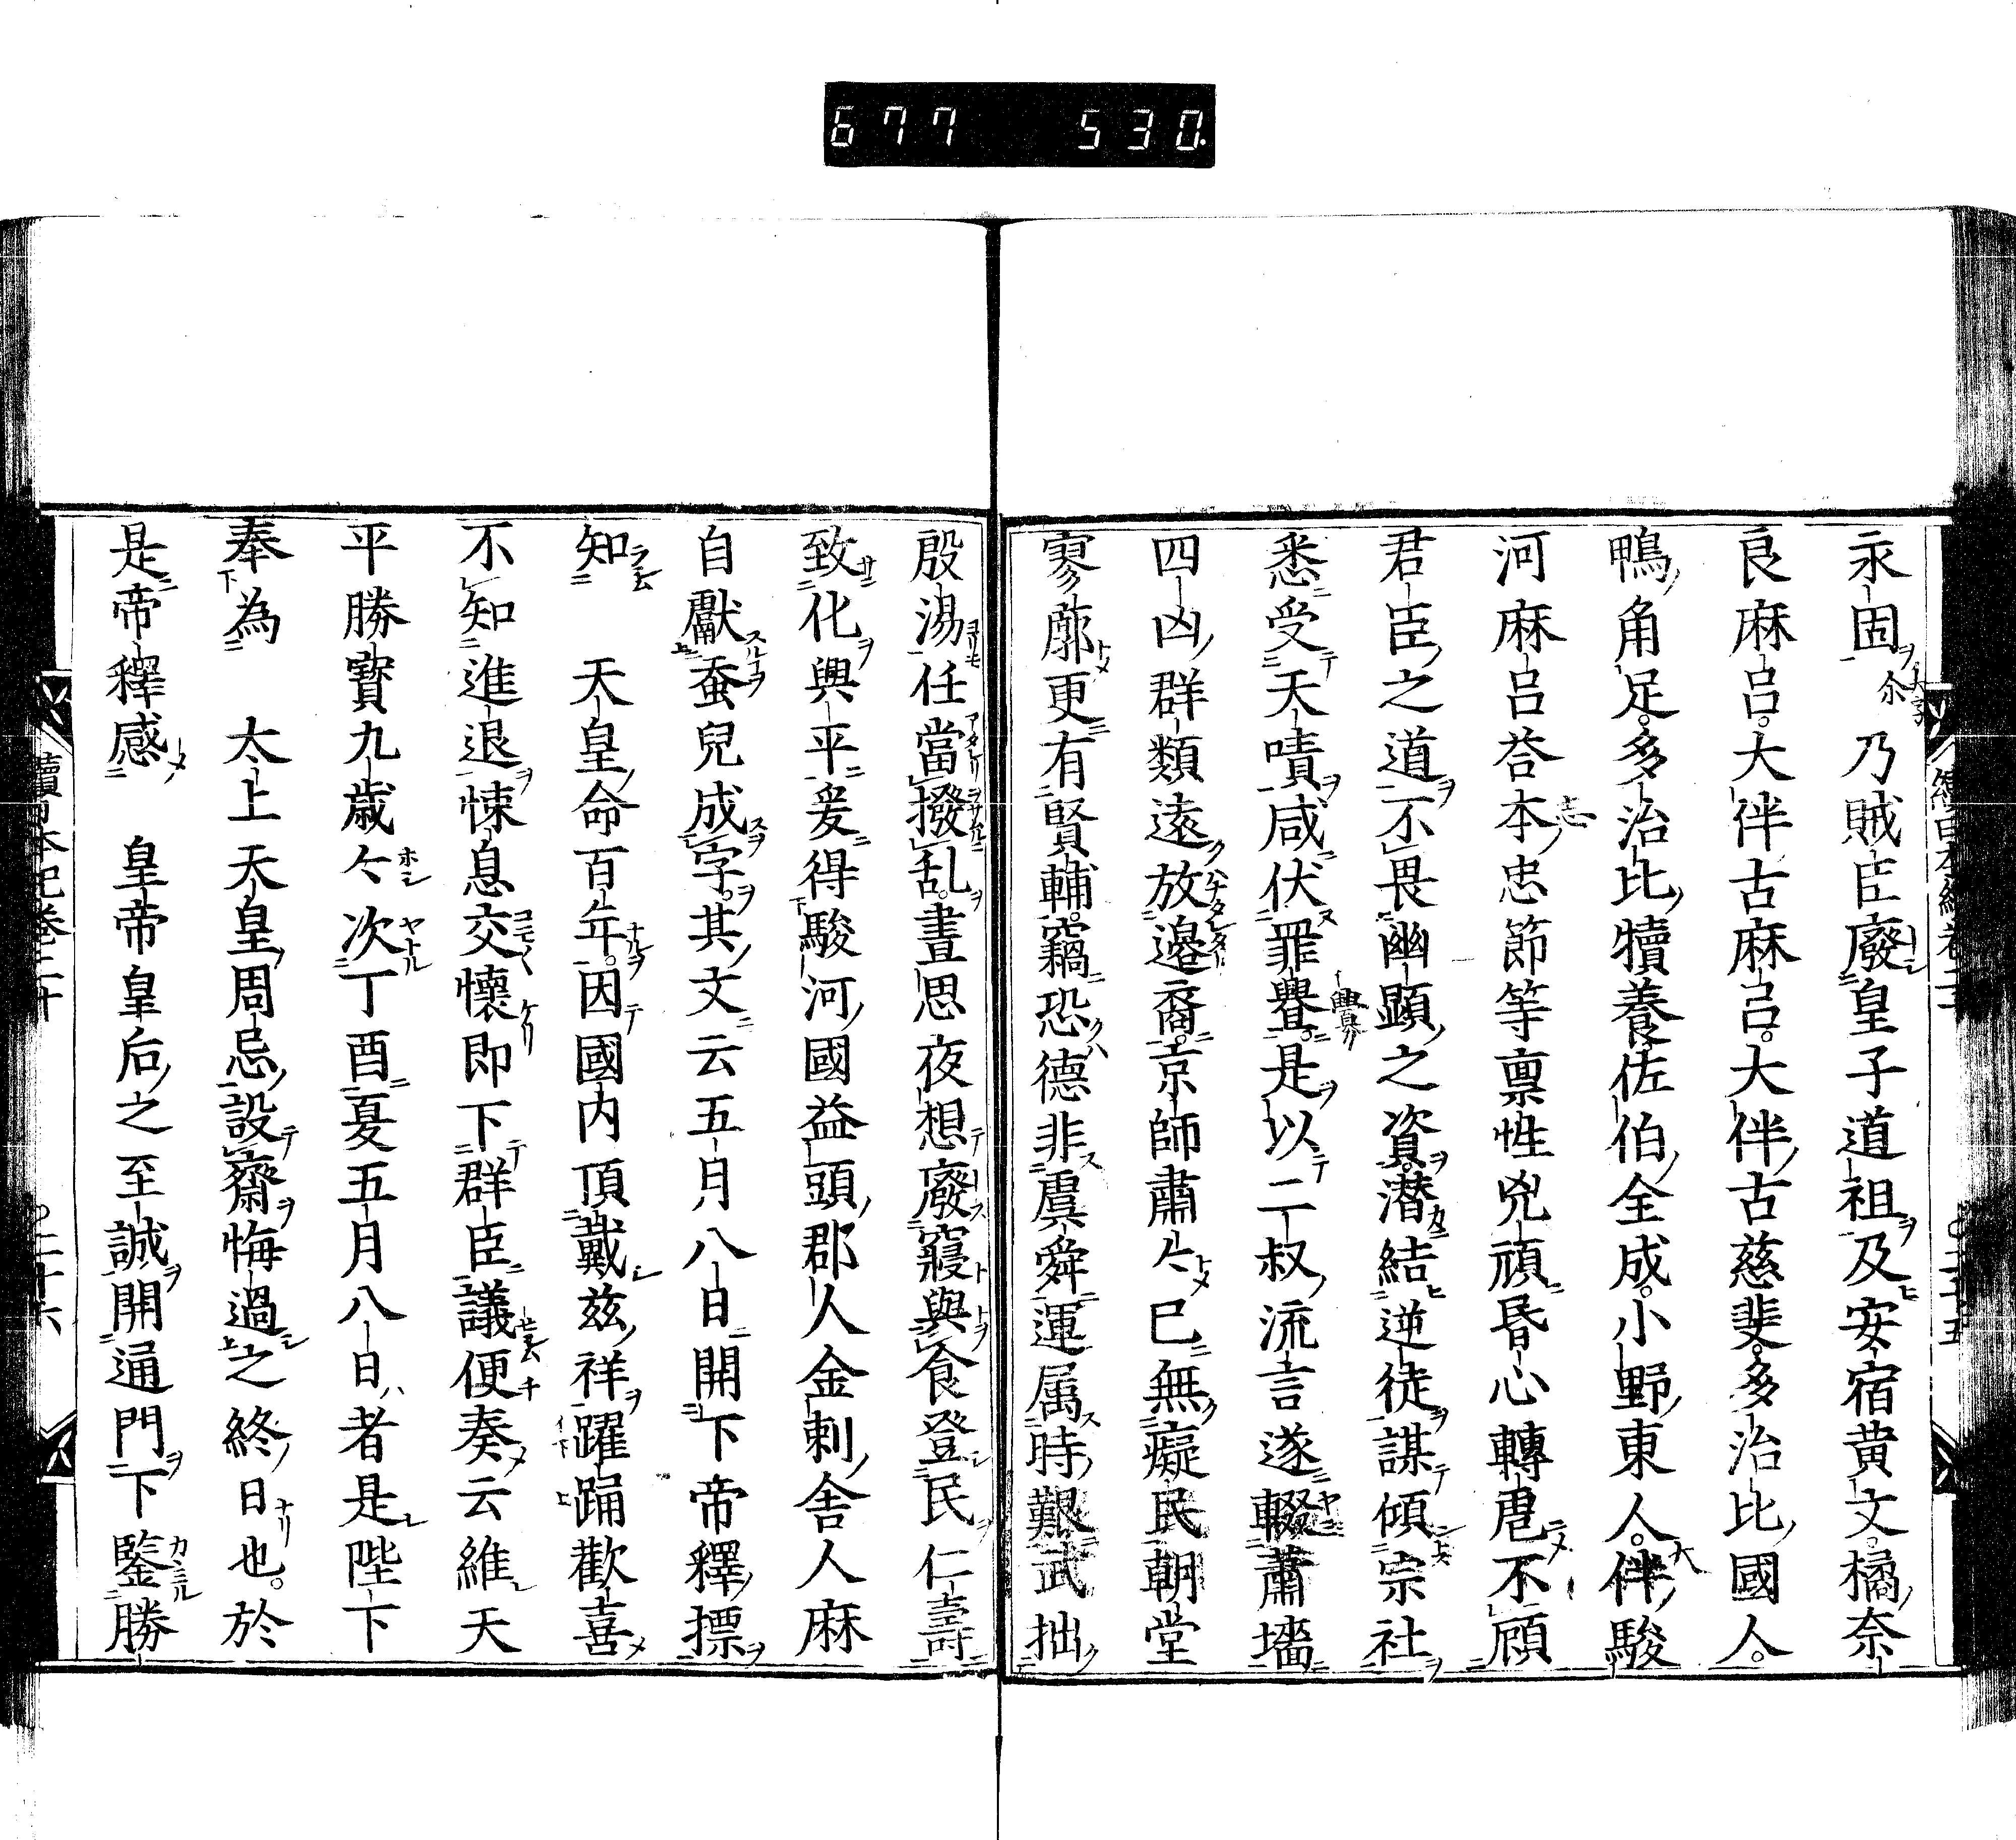 677 530.
永固尒乃賊臣廢皇子道祖及安宿黄文。橘奈
良麻呂。大伴古麻呂。大伴古慈斐。多治比國人。
鴨角足。多治比犢養。佐伯全成。小野東人。伴駿
河麻呂荅本忠節等禀性兇頑昏心轉虐不顧
君臣之道不畏幽顯之資。潜結逆徒謀傾宗社
悉受天嘖咸伏罪舋。是以二叔流言遂輟蕭墻
四凶群類遠放邊裔。京師肅々已無癡民朝堂
寥廓更有賢輔。竊恐德非虞舜運属時艱武拙
殷湯任當撥乱。晝思夜想廢寢與食登民仁壽
致化興平爰得駿河國益頭郡人金刺舎人麻
自獻蚕兒成字。其文云五月八日開下帝釋標
知 天皇命百年。因國内頂戴兹祥躍踊歡喜
不知進退悚息交懷即下群臣議便奏云維天
平勝寳九歳々次丁酉夏五月八日者是陛下
奉為 太上天皇周忌設齋悔過之終日也。於
是帝釋感 皇帝皇后之至誠開通門下鑒勝
續日本紀巻二十 二十六